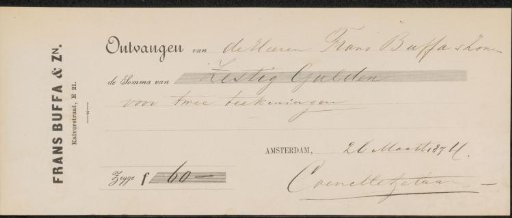 FRANS BUFFA & ZN.
Kalverstraat, E 21.
Ontvangen van de Heeren Frans Buffa & Zon
de Somma van Zestig Gulden
voor twee teekeningen
AMSTERDAM, 26 Maart 187
Zegge f 60 —